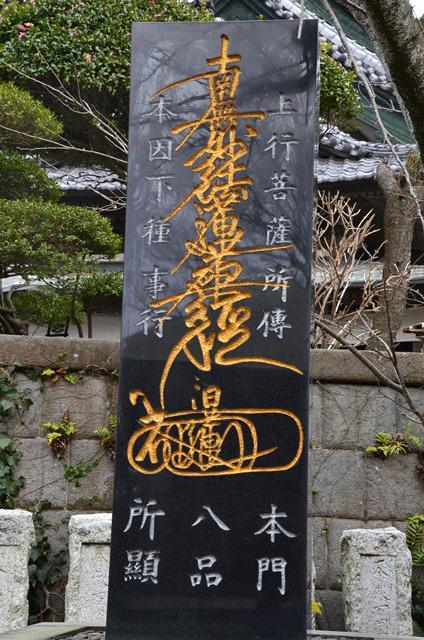 上行菩薩所傳
南無妙法蓮華経
日蓮
本因下種事行
本門
八品
所顯